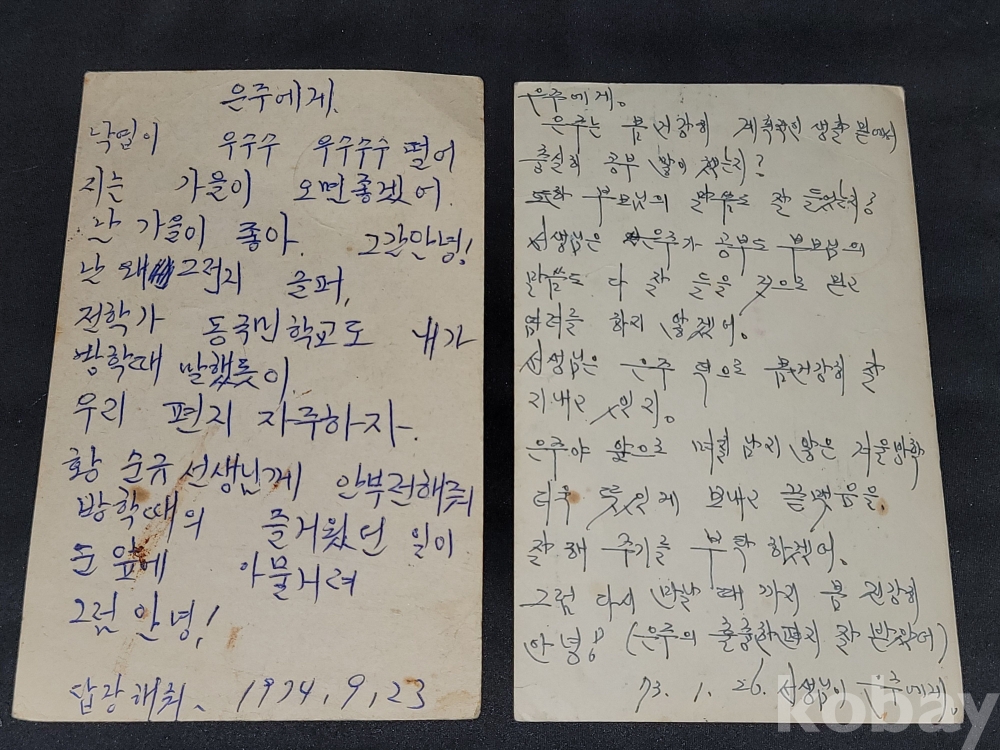 은주에게.
낙엽이 우수수 우수수수 떨어
지는 가을이 오면좋겠어.
난 가을이 좋아. 그간안녕!
난 왜 그런지 슬퍼,
전학가 동국민학교도 내가
방학때 말했듯이.
우리 편지 자주하자.
황순규선생님께 안부전해줘
방학때의 즐거웠던 일이
눈앞에 아물거려
그럼 안녕!
답장해줘. 1974, 9, 23
은주에게.
은주는 몸건강히 계획적인 생활 안에서
충실히 공부 많이 했는지?
또한 부모님의 말씀도 잘 들었는지?
선생님은 은주가 공부도 부모님의
말씀도 다 잘 들을 것으로 믿고
염려를 하지 않겠어.
선생님은 은주 덕으로 몸건강히 잘
지내고 있지.
은주야 앞으로 며칠 남지 않은 겨울방학
더욱 뜻있게 보내고 끝맺음을
잘 해 주기를 부탁 하겠어.
그럼 다시 만날 때 까지 몸 건강히
안녕! (은주의 출중한편지 잘 받았어)
73. 1. 26. 선생님이 은주에게.
kobay